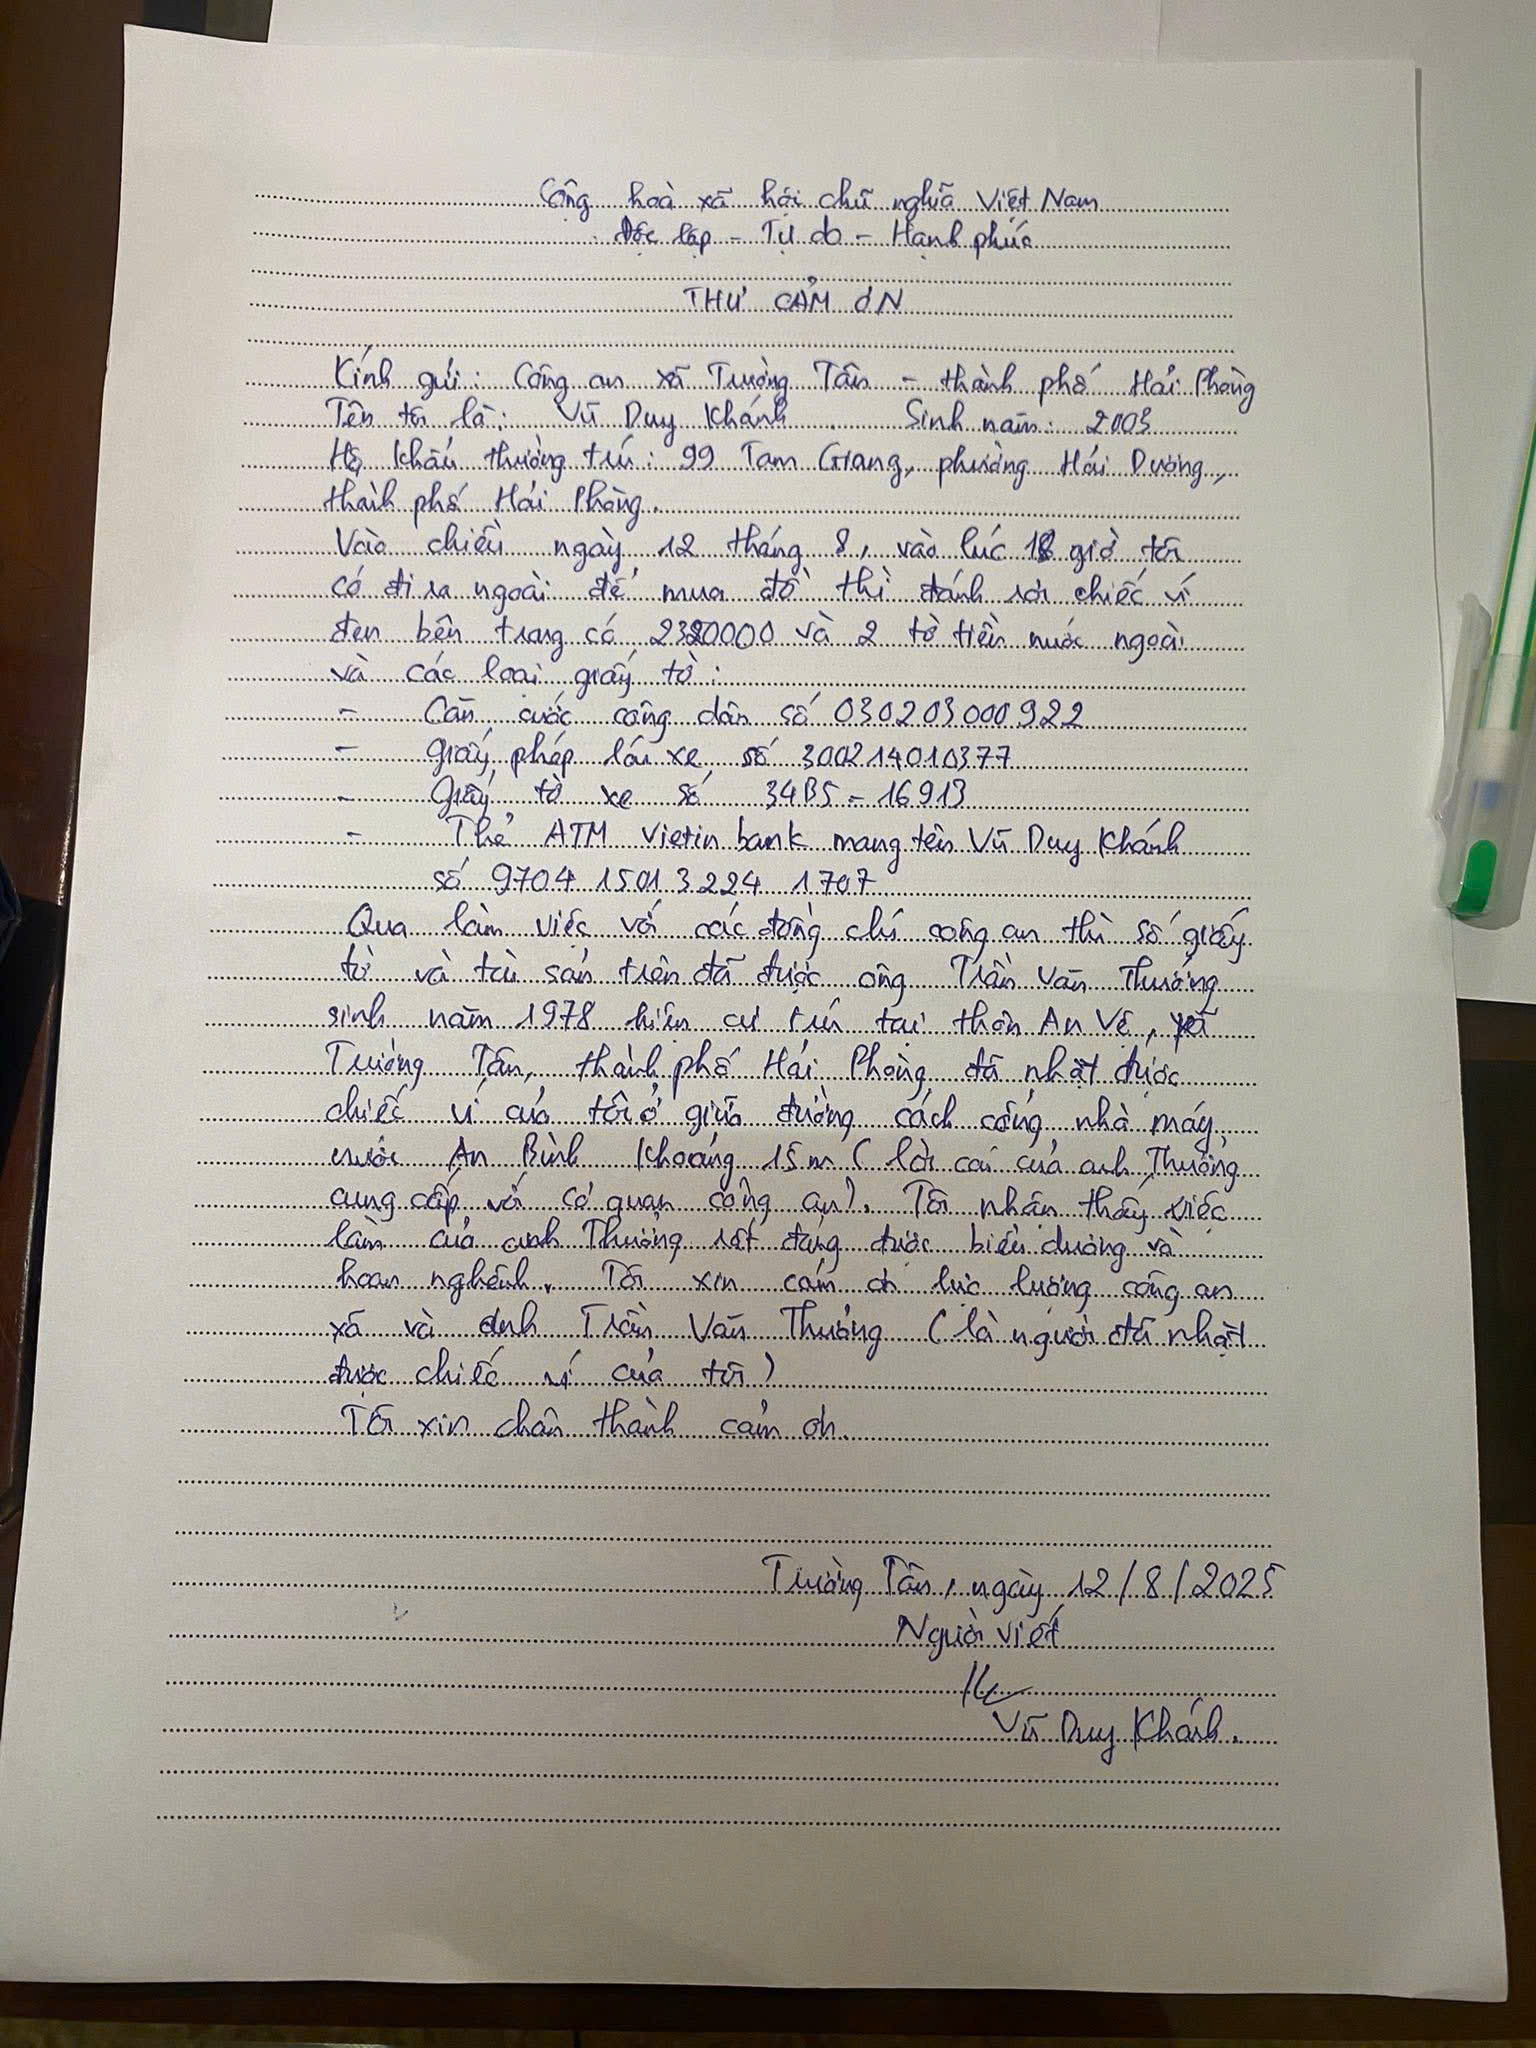 Cộng hoà xã hội chủ nghĩa Việt Nam
Độc lập - Tự do - Hạnh phúc
THƯ CẢM ƠN
Kính gửi: Công an xã Trường Tân - thành phố Hải Phòng
Tên tôi là: Vũ Duy Khánh. Sinh năm: 2003
Hộ khẩu thường trú: 99 Tam Giang, phường Hải Dương,
thành phố Hải Phòng.
Vào chiều ngày 12 tháng 8, vào lúc 18 giờ tôi
có đi ra ngoài để mua đồ thì đánh rơi chiếc ví
đen bên trong có 2320000 và 2 tờ tiền nước ngoài
và các loại giấy tờ:
- Căn cước công dân số 030203000922
- Giấy phép lái xe số 300214010377
- Giấy tờ xe số 34B5-16913
- Thẻ ATM Vietinbank mang tên Vũ Duy Khánh
số 9704 1501 3224 1707
Qua làm việc với các đồng chí công an thì số giấy
tờ và tài sản trên đã được ông Trần Văn Thưởng
sinh năm 1978 hiện cư trú tại thôn An Vệ, xã
Trường Tân, thành phố Hải Phòng đã nhặt được
chiếc ví của tôi ở giữa đường cách cổng nhà máy
nước An Bình khoảng 15m (lời cai của anh Thưởng
cung cấp với cơ quan công an). Tôi nhận thấy việc
làm của anh Thưởng rất đáng được biểu dương và
hoan nghênh. Tôi xin cảm ơn lực lượng công an
xã và anh Trần Văn Thưởng (là người đã nhặt
được chiếc ví của tôi)
Tôi xin chân thành cảm ơn.
Trường Tân, ngày 12/8/2025
Người viết
Vũ Duy Khánh.